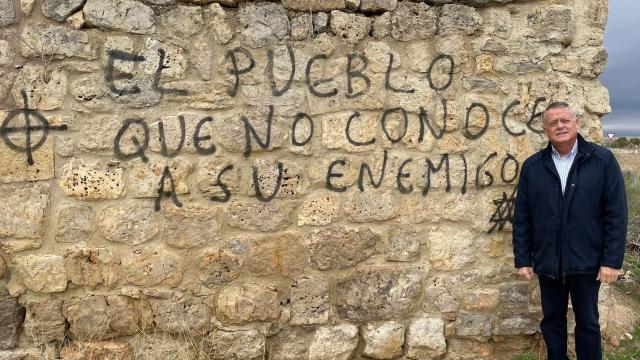 EL PUEBLO
QUE NO CONOCE
A SU ENEMIGO